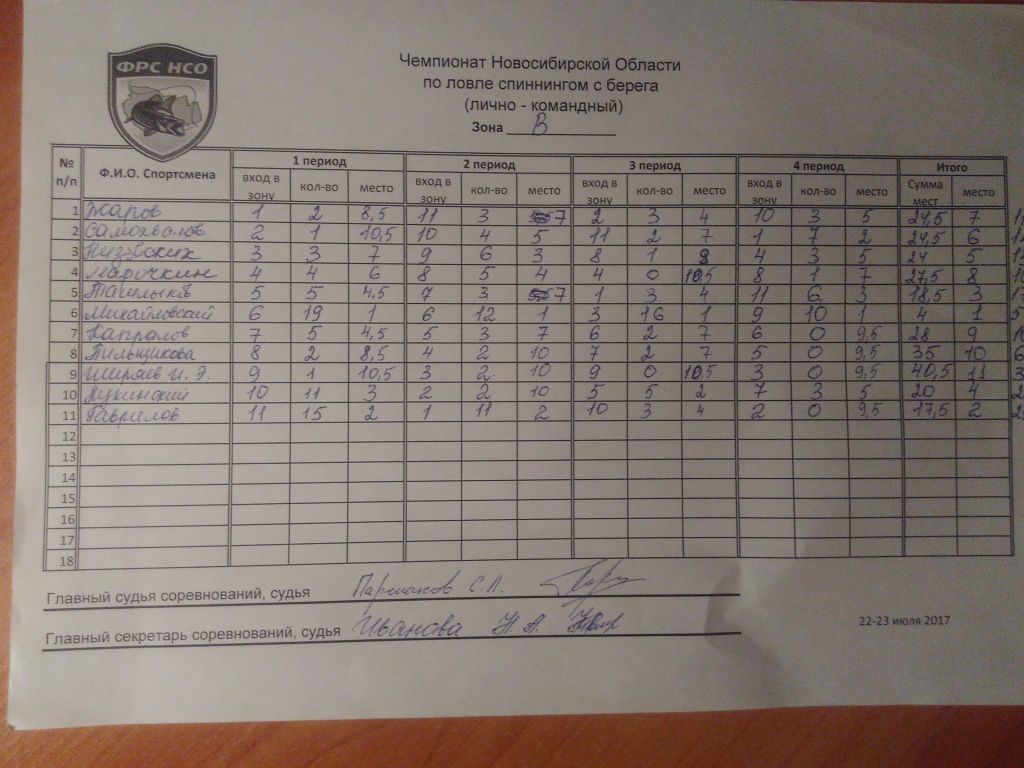 ФРС НСО
Чемпионат Новосибирской Области
по ловле спиннингом с берега
(лично - командный)
Зона В
№ п/п Ф.И.О. Спортсмена 1 период 2 период 3 период 4 период Итого
вход в зону кол-во место вход в зону кол-во место вход в зону кол-во место вход в зону кол-во место Сумма мест место
1 Жаров 1 2 8,5 11 3 7 2 3 4 10 3 5 24,5 7
2 Самохвалов 2 1 10,5 10 4 5 11 2 7 1 7 2 24,5 6
3 Низовских 3 3 7 9 6 3 8 1 9 4 3 5 24 5
4 Марочкин 4 4 6 8 5 4 4 0 10,5 8 1 7 27,5 8
5 Ташлыков 5 5 4,5 7 3 7 1 3 4 11 6 3 18,5 3
6 Михайловский 6 19 1 6 12 1 3 16 1 9 10 1 4 1
7 Капралов 7 5 4,5 5 3 7 6 2 7 6 0 9,5 28 9
8 Пильщикова 8 2 8,5 4 2 10 7 2 7 5 0 9,5 35 10
9 Ширяев И. Э. 9 1 10,5 3 2 10 9 0 10,5 3 0 9,5 40,5 11
10 Лукинский 10 11 3 2 2 10 5 5 2 7 3 5 20 4
11 Гаврилов 11 15 2 1 11 2 10 3 4 2 0 9,5 17,5 2
12
13
14
15
16
17
18
Главный судья соревнований, судья С.Л.
Главный секретарь соревнований, судья Иванова Н.А.
22-23 июля 2017